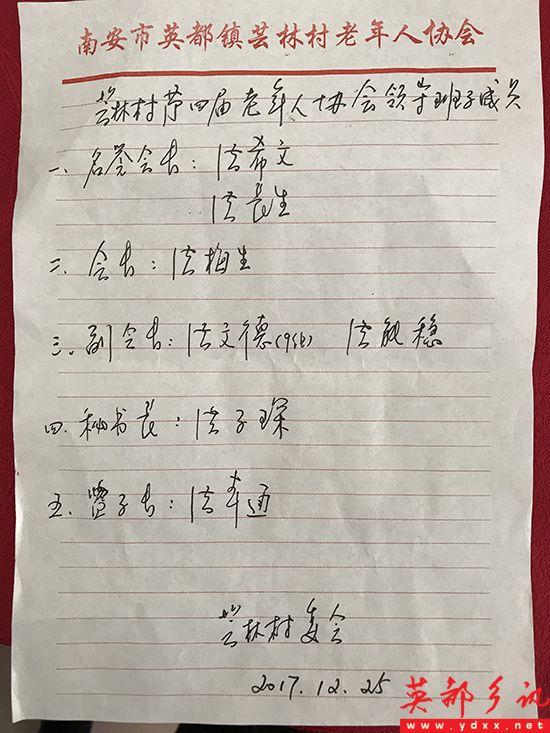 南安市英都镇芸林村老年人协会
芸林村第四届老年人协会领导班子成员
一、名誉会长：洪希文
洪長生
二、会长：洪梅生
三、副会长：洪文德(1956) 洪能稳
四、秘书長：洪子琛
五、理子长：洪奉通
芸林村委会
2017.12.25
英都乡讯
www.ydxx.net